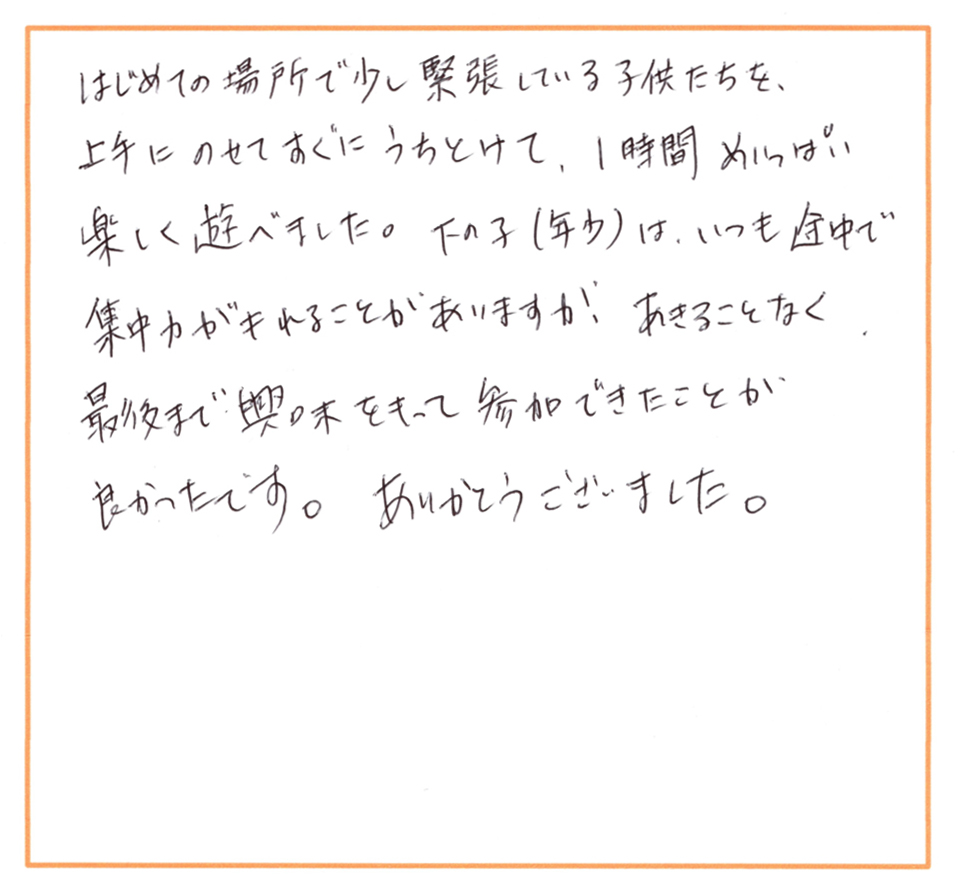 はじめての場所で少し緊張している子供たちを、
上手にのせてすぐにうちとけて、1時間めいっぱい
楽しく遊べました。下の子(年少)は、いつも途中で
集中力がキれることがありますが、あきることなく、
最後まで興味をもって参加できたことが
良かったです。ありがとうございました。